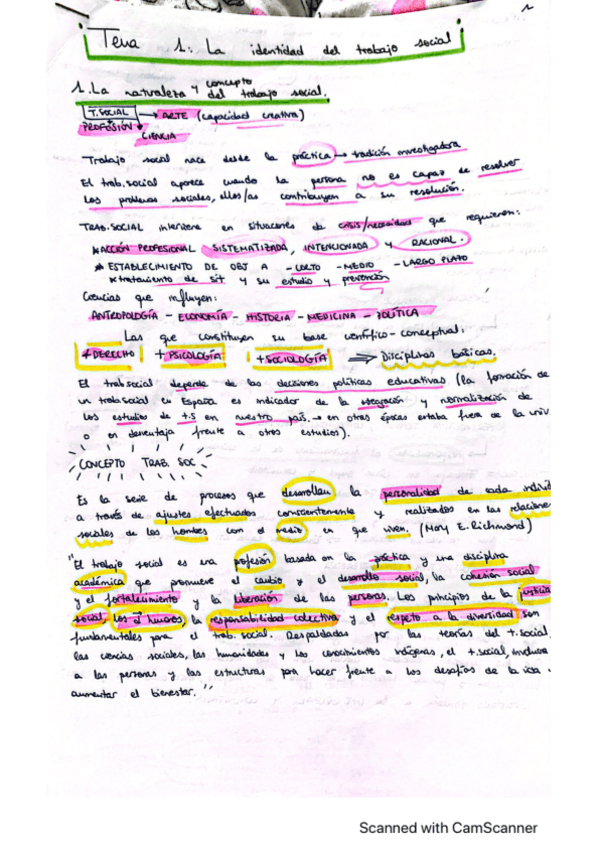 1
Tema 1: La identidad del trabajo social
1. La naturaleza y concepto del trabajo social.
T. SOCIAL → ARTE (capacidad creativa)
PROFESIÓN
CIENCIA
Trabajo social nace desde la práctica → tradición investigadora
El trab. social aparece cuando la persona no es capaz de resolver
los problemas sociales, ellos/as contribuyen a su resolución.
TRAB. SOCIAL interviene en situaciones de crisis/necesidades que requieren:
* ACCIÓN PROFESIONAL SISTEMATIZADA, INTENCIONADA y RACIONAL.
* ESTABLECIMIENTO DE OBJ A - CORTO - MEDIO - LARGO PLAZO
* tratamiento de sit y su estudio y prevención
Ciencias que influyen:
ANTROPOLOGÍA - ECONOMÍA - HISTORIA - MEDICINA - POLÍTICA
Las que constituyen su base científico-conceptual:
+ DERECHO + PSICOLOGÍA + SOCIOLOGÍA ⇒ Disciplinas básicas.
El trab social depende de las decisiones políticas educativas (la formación de
un trab social en España es indicador de la integración y normalización de
los estudios de t.s en nuestro país. → en otras épocas estaba fuera de la univ.
o en desventaja frente a otros estudios).
CONCEPTO TRAB. SOC
Es la serie de procesos que desarrollan la personalidad de cada individ
a través de ajustes efectuados conscientemente y realizados en las relaciones
sociales de los hombres con el medio en que viven. (Mary E. Richmond)
"El trabajo social es una profesión basada en la práctica y una disciplina
académica que promueve el cambio y el desarrollo social, la cohesión social
y el fortalecimiento y la liberación de las personas. Los principios de la justicia
social, los dº humanos la responsabilidad colectiva y el respeto a la diversidad son
fundamentales para el trab. social. Respaldadas por las teorías del t. social
las ciencias sociales, las humanidades y los conocimientos indígenas, el t. social, involucra
a las personas y las estructuras para hacer frente a los desafíos de la vida.
aumentar el bienestar."
Scanned with CamScanner